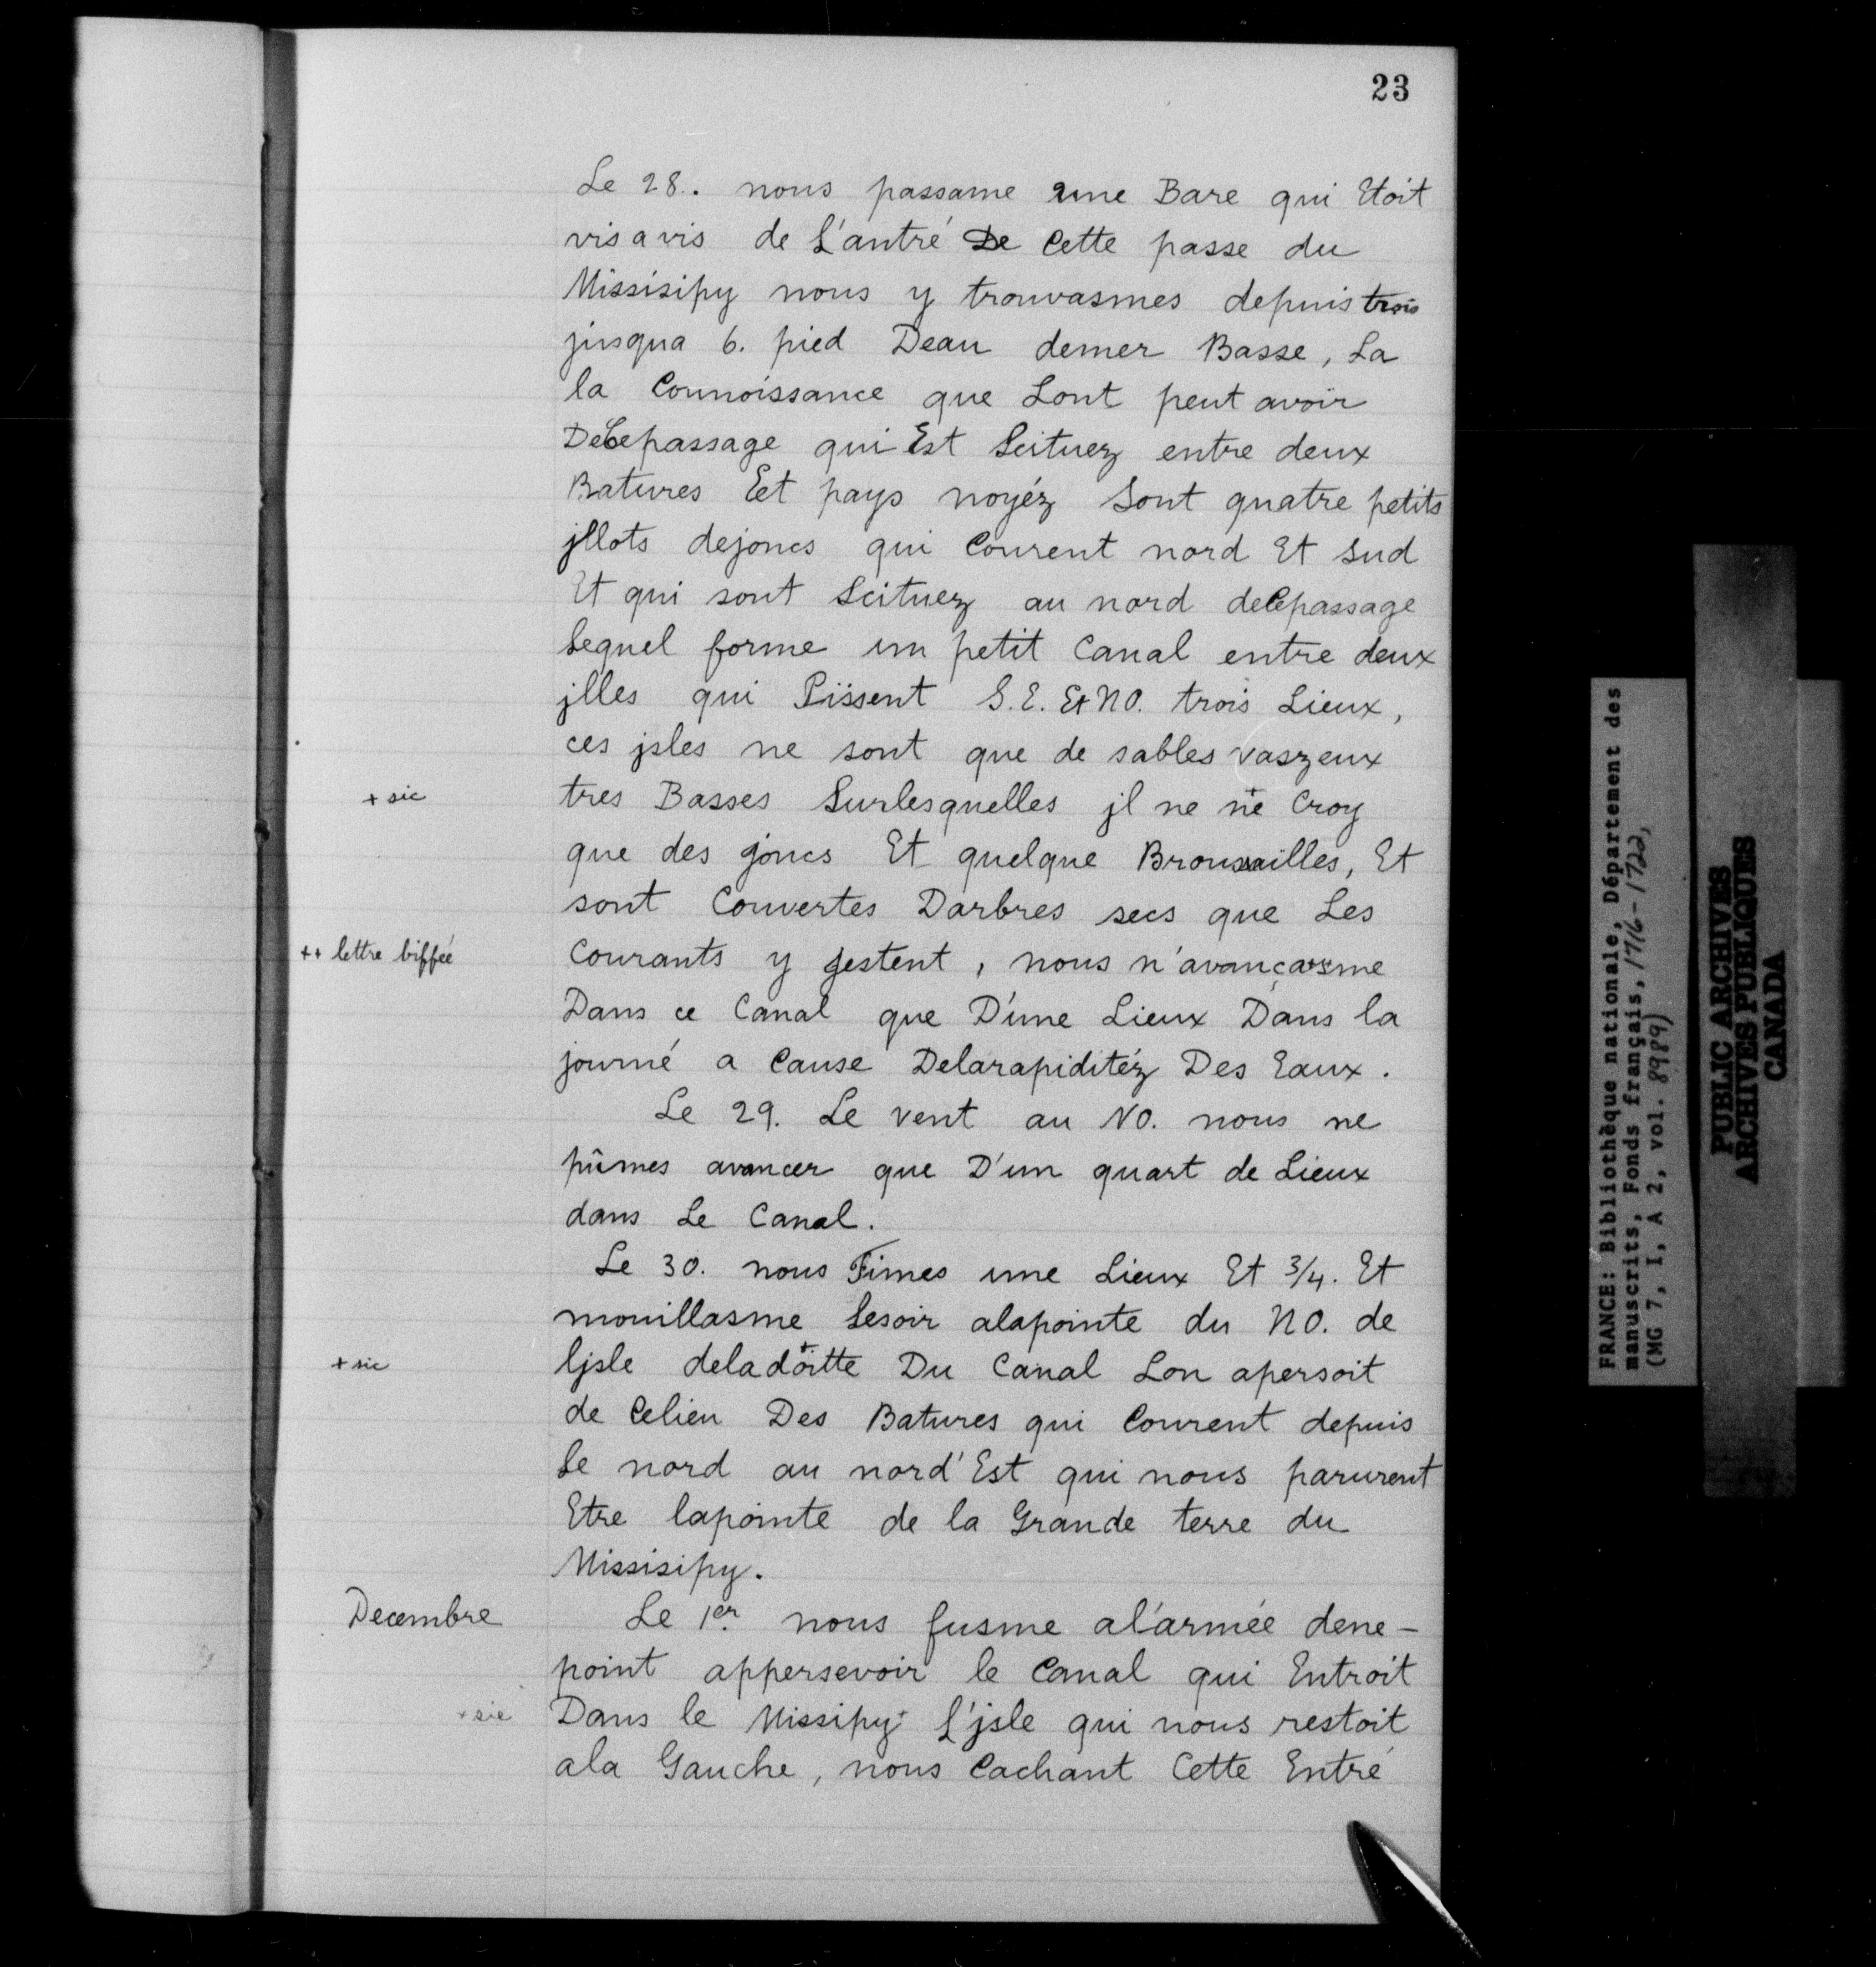 23
Le 28. nous passame une Bare qui Etoit
vis a vis de L'antré De Cette passe du
Missisipy nous y trouvasmes depuis trois
jusqua 6. pied Deau demer Basse, La
la Connoissance que Lont peut avoir
DeCepassage qui Est Scituez entre deux
Batures Eet pays noyéz Sont quatre petits
jllots dejoncs qui Courent nord Et Sud
Et qui sont Scituez au nord deCepassage
Lequel forme un petit Canal entre deux
jlles qui Pissent S.E. Et NO. trois Lieux,
ces jsles ne sont que de sables vaszeux
+ sic
tres Basses Surlesquelles jl ne ne Croy
que des joncs Et quelque Brousailles, Et
sont Couvertes Darbres secs que Les
++ lettre biffée
Courants y jestent, nous n'avançasme
Dans ce Canal que D'une Lieux Dans la
journé a Cause Delarapiditéz Des Eaux.
Le 29. Le vent au NO. nous ne
pûmes avancer que D'un quart de Lieux
dans Le Canal.
Le 30. nous Fimes une Lieux Et 3/4. Et
mouillasme Lesoir alapointe du NO. de
+ sic
ljsle deladoitte+ Du Canal Lon apersoit
de Celieu Des Batures qui Courent depuis
Le nord au nord'Est qui nous parurent
Etre lapointe de la Grande terre du
Missisipy.
Decembre
Le 1er. nous fusme al'armée dene-
point appersevoir le Canal qui Entroit
+ sic
Dans le Missipy+ L'jsle qui nous restoit
ala Gauche, nous Cachant Cette Entré
FRANCE: Bibliothèque nationale, Département des
manuscrits, Fonds français, 1716-1722,
(MG 7, I, A 2, vol. 8989)
PUBLIC ARCHIVES
ARCHIVES PUBLIQUES
CANADA